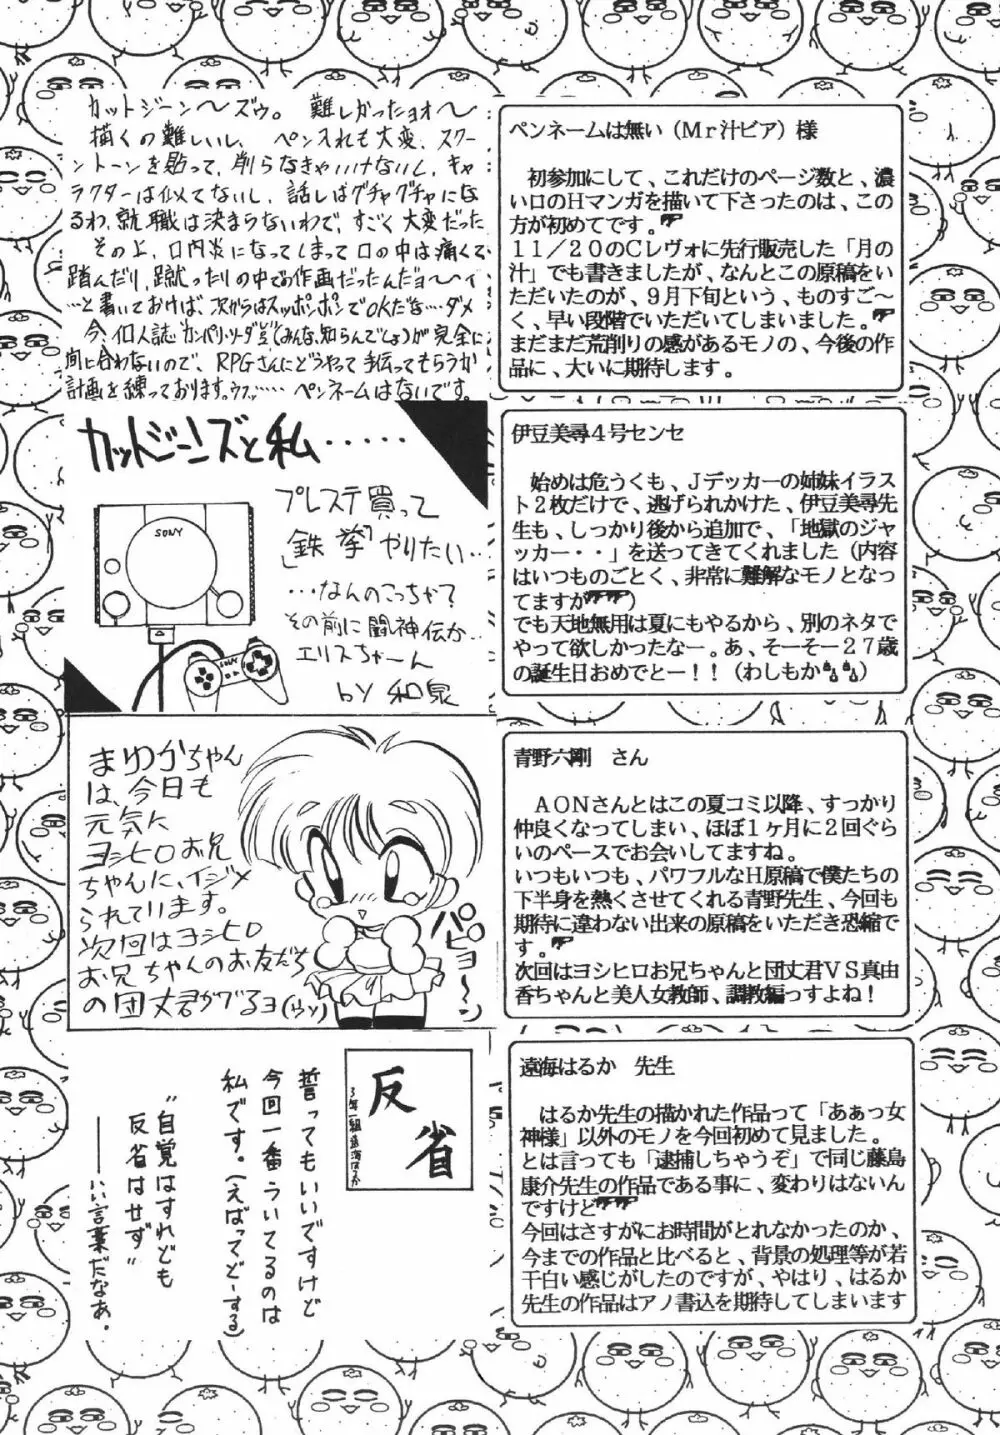 カットジーン〜ズゥ。難しかったョオ〜
描くの難しいし、ペン入れも大変、スクリ
ーントーンを貼って、削らなきゃいけないし、キャ
ラクターは似てないし、話しはグチャグチャにな
るわ、就職は決まらないわで、すごく大変だった
その上、口内炎になってしまって口の中は痛くて
踏んだり、蹴ったりの中でお作画だったんだョ〜〜ィ
…と書いておけば、次からはスッポンポンでOKだな…ダメ
今、個人誌"カンパリ・ソーダ"(みんな知らんでしょ)が完全に
間に合わないので、RPGさんにどうやって手伝ってもらうか
計画を練っております。ウフッ…… ペンネームはないです。
ペンネームは無い(Mr汁ビア)様
初参加にして、これだけのページ数と、濃
い口のHマンガを描いて下さったのは、この
方が初めてです。
11/20のCレヴォに先行販売した「月の
汁」でも書きましたが、なんとこの原稿をい
ただいたのが、9月下旬という、ものすご〜
く、早い段階でいただいてしまいました。
まだまだ荒削りの感があるモノの、今後の作
品に、大いに期待します。
カットジーンズと私・・・・・
SONY
SONY
プレステ買って
「鉄拳」やりたい…
…なんのこっちゃ?
その前に闘神伝か…
エリスちゃーん
by 和泉
伊豆美尋4号センセ
始めは危うくも、Jデッカーの姉妹イラス
ト2枚だけで、逃げられかけた、伊豆美尋先
生も、しっかり後から追加で、「地獄のジャ
ッカー・・」を送ってきてくれました(内容
はいつものごとく、非常に難解なモノとなっ
てますが)
でも天地無用は夏にもやるから、別のネタで
やって欲しかったなー。あ、そーそー27歳
の誕生日おめでとー!!(わしもか)
まゆかちゃん
は、今日も
元気に
ヨシヒロお兄
ちゃんに、イジメ
られています。
次回はヨシヒロ
お兄ちゃんのお友だち
の団丈君がでるョ(ウソ)
パピョ〜〜ン
青野六剛 さん
AONさんとはこの夏コミ以降、すっかり
仲良くなってしまい、ほぼ1ヶ月に2回ぐら
いのペースでお会いしてますね。
いつもいつも、パワフルなH原稿で僕たちの
下半身を熱くさせてくれる青野先生、今回も
期待に違わない出来の原稿をいただき恐縮で
す。
次回はヨシヒロお兄ちゃんと団丈君VS真由
香ちゃんと美人女教師、調教編っすよね!
反省
3年一組遠海はるか
誓ってもいいですけど
今回一番ういてるのは
私です。(えばってどーする)
"自覚はすれども
反省はせず"
――いい言葉だなぁ。
遠海はるか 先生
はるか先生の描かれた作品って「あぁっ女
神様」以外のモノを今回初めて見ました。
とは言っても「逮捕しちゃうぞ」で同じ藤島
康介先生の作品である事に、変わりはないん
ですけど
今回はさすがにお時間がとれなかったのか、
今までの作品と比べると、背景の処理等が若
干白い感じがしたのですが、やはり、はるか
先生の作品はアノ書込を期待してしまいます